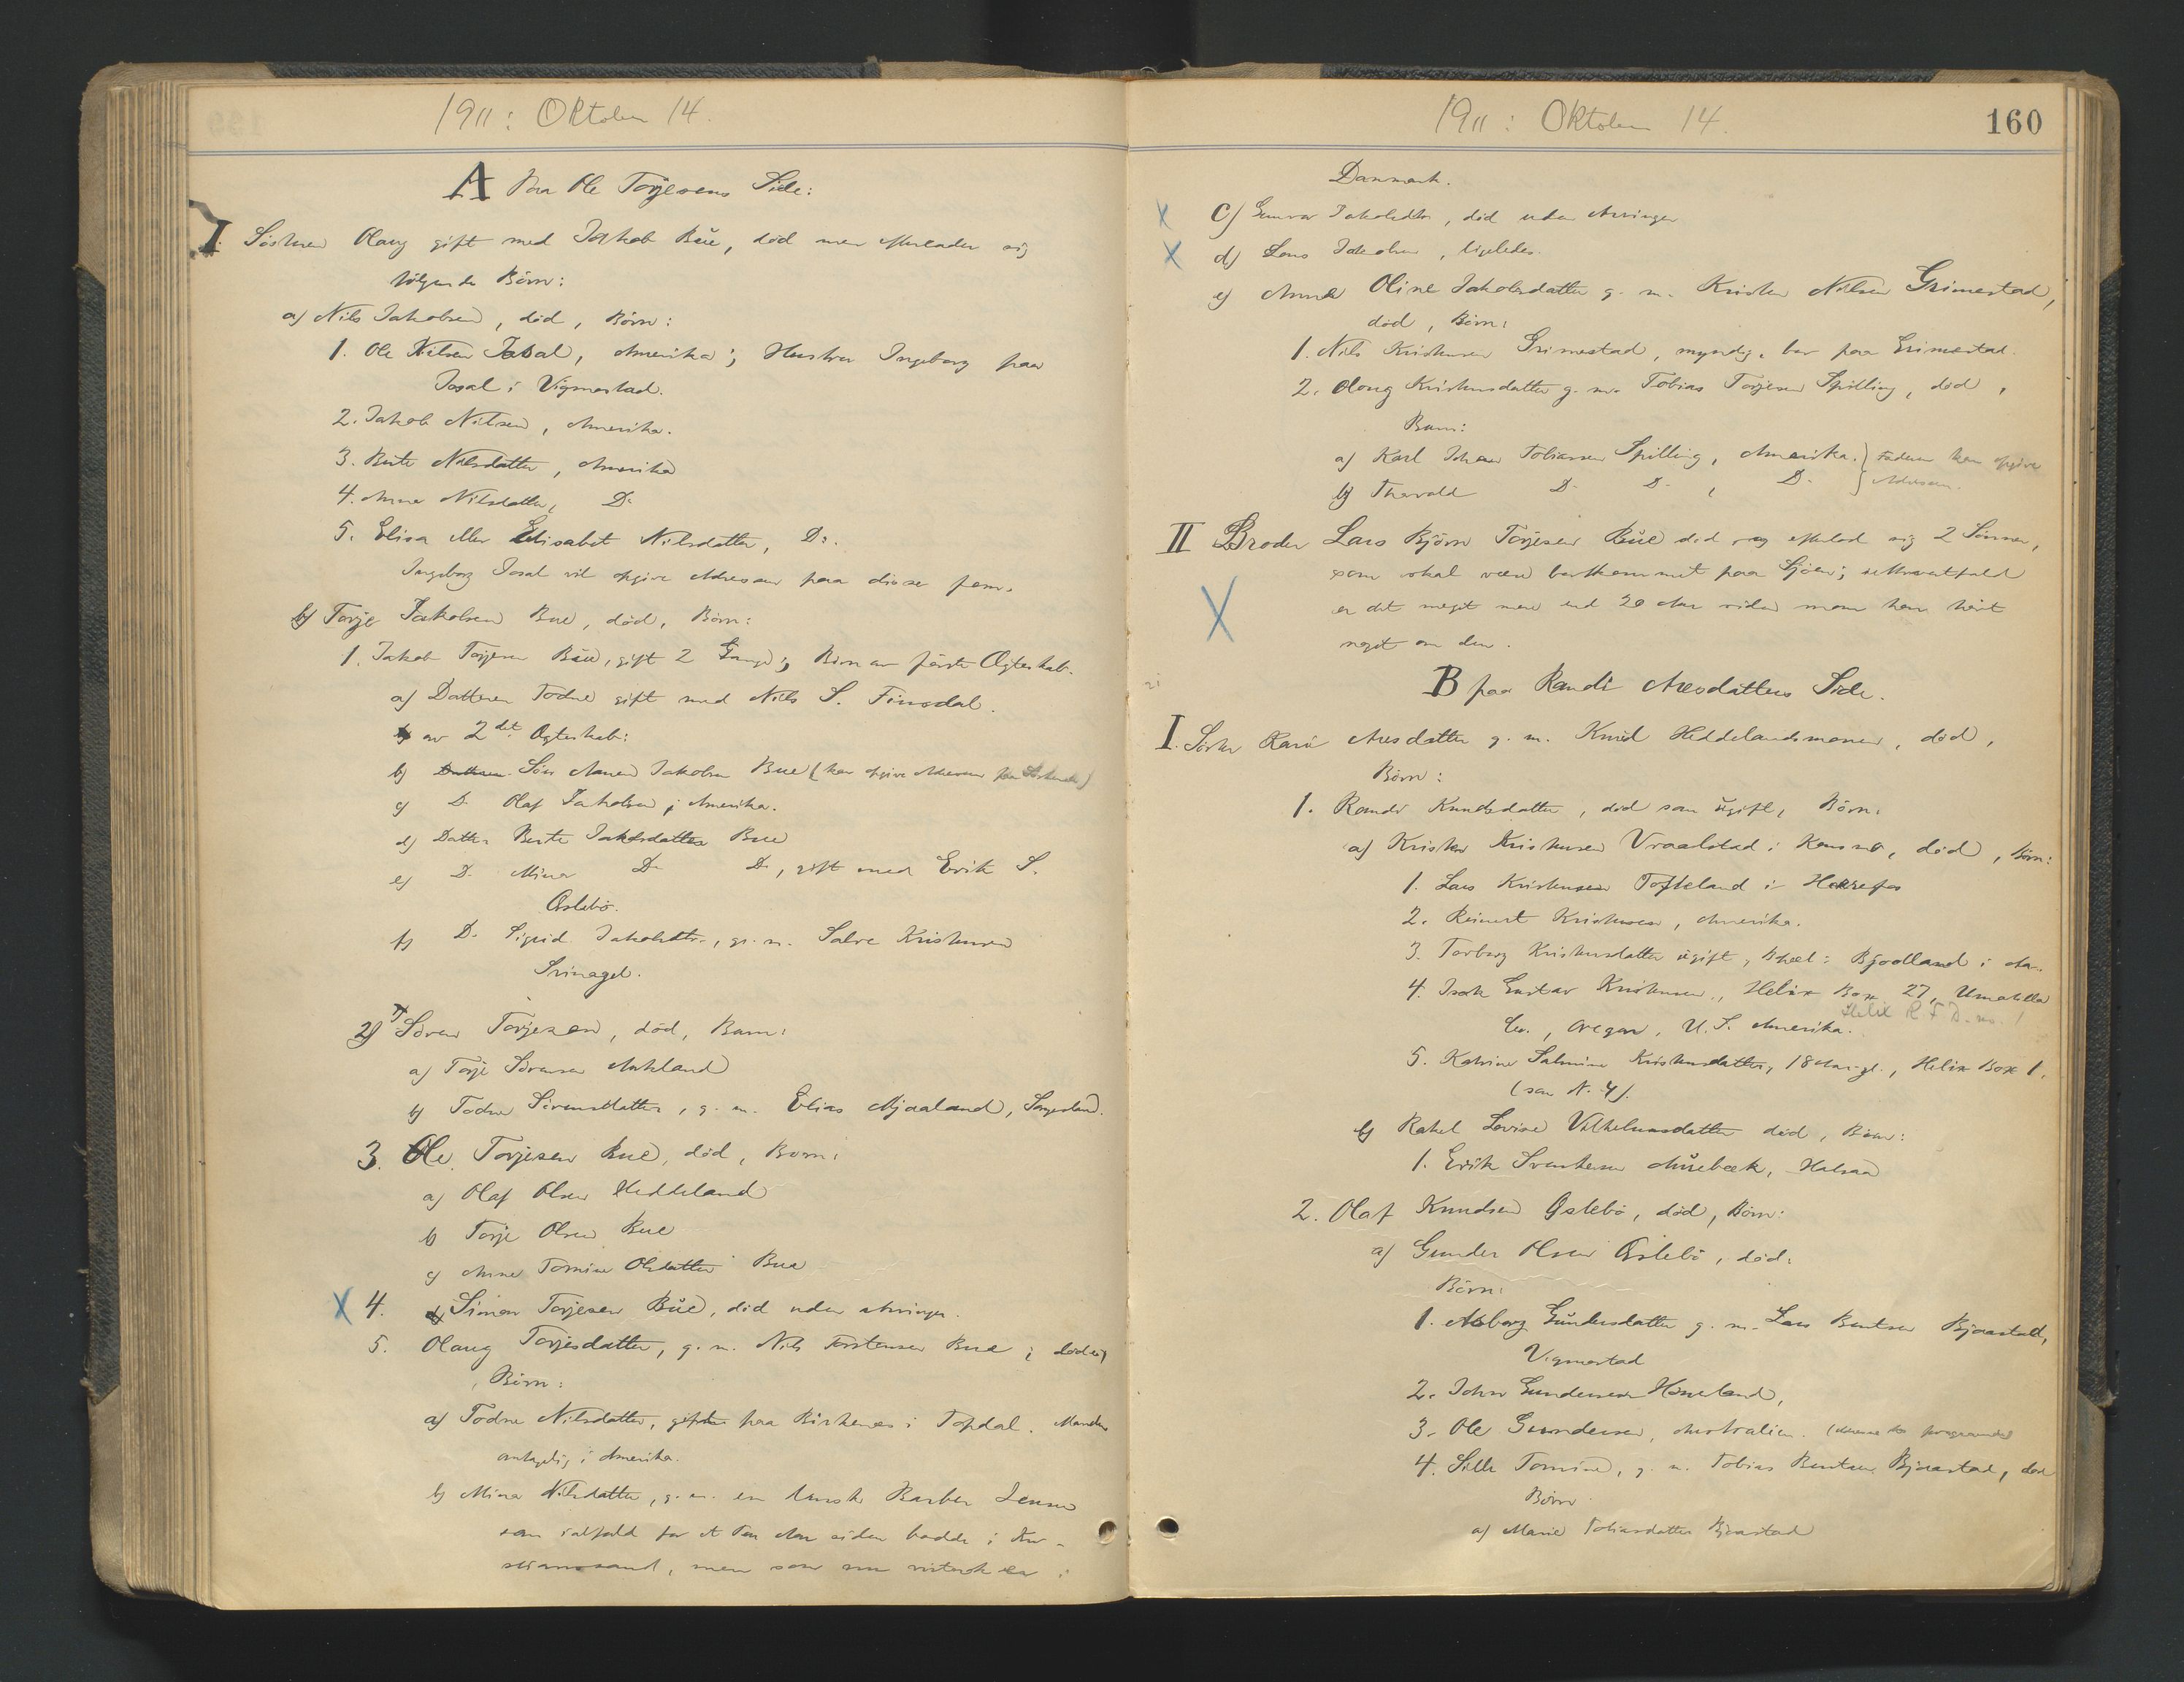 1911: Oktober 14.
A Paa Ole Torjesens Side:
I. Søsteren Olaug gift med Jakob Bue, død men efterlader sig
følgende Børn:
a) Nils Jakobsen, død, Børn:
1. Ole Nilsen Josal, Amerika; Hustru Ingeborg paa
Josal i Vigmostad.
2. Jakob Nilsen, Amerika.
3. Berte Nilsdatter, Amerika
4. Anne Nilsdatter, Do
5. Elisa eller Elisabet Nilsdatter, Do.
Ingeborg Josal vil opgive Adressen paa disse fem.
b) Torje Jakobsen Bue, død, Børn:
1. Jakob Torjesen Bue, gift 2 Gange; Børn av første Ægteskab.
a) Datteren Todne gift med Nils S. Finsdal.
av 2det Ægteskab:
b) Søn Anen Jakobsen Bue (kan opgive Adressen paa Søskende)
c) Do Olaf Jakobsen, Amerika.
d) Datter Berte Jakobsdatter Bue
e) Do Mina Do Do, gift med Erik S.
Øslebø.
f) Do Sigrid Jakobsdtr., g. m. Salve Kristensen
2) Søren Torjesen, død, Barn:
a) Torje Sørensen Aukland
b) Todne Sørensdatter, g. m. Elias Mjaaland,
3. Ole Torjesen Bue, død, Børn:
a) Olaf Olsen Heddeland
b) Torje Olsen Bue
c) Anne Tomine Olsdatter Bue
X 4. Simon Torjesen Bue, død uden Arvinger.
5. Olaug Torjesdatter, g. m. Nils Torstensen Bue; død
Børn:
a) Todne Nilsdatter, gift paa Birkenes i Topdal. Manden
antagelig i Amerika.
b) Mina Nilsdatter, g. m. en dansk Barber Jensen
som ialfald for et Par Aar siden bodde i Kri-
stianssand, men som nu vistnok er i
1911: Oktober 14.
160
Danmark.
X c) Gunvor Jakobsdtr, død uden Arvinger
X d) Lars Jakobsen, ligeledes.
e) Anne Oline Jakobsdatter g. m. Kristen Nilsen Grimestad,
død, Børn:
1. Nils Kristensen Grimestad, myndig, bor paa Grimestad.
2. Olaug Kristensdatter g. m. Tobias Torjesen Spilling, død,
Barn:
a) Karl Johan Tobiassen Spilling, Amerika. } Faderen kan opgive
b) Thorvald Do Do, Do } Adressen.
II Broder Lars Bjørn Torjesen Bue død og efterlod sig 2 Sønner,
som skal være bortkommet paa Sjøen; ialfald
X er det meget mere end 20 Aar siden man har hørt
noget om dem.
B paa Randi Aresdatters Side.
I. Søster Kari Aresdatter g. m. Knud Heddelandsmonen, død,
Børn:
1. Randi Knudsdatter, død som ugift, Børn:
a) Kristen Kristensen Vraalstad i død, Børn:
1. Lars Kristensen Tofteland i
2. Reinert Kristensen, Amerika.
3. Torborg Kristensdatter ugift, Bjelland i
4. Isak Gustav Kristensen, Helix Box 27, Umatilla
Helix R F D. no. 1
Co., Oregon, U. S. Amerika.
5. Katrine Salmine Kristensdatter, 18 Aar gl., Helix Box 1.
(som N. 4).
b) Rakel Lovise Vilhelmsdatter død, Børn:
1. Erik Svendsen
2. Olaf Knudsen Øslebø, død, Børn:
a) Gunder Olsen Øslebø, død:
Børn:
1. Aasborg Gundersdatter g. m. Lars Bentsen Bjaastad,
Vigmostad
2. John Gundersen
3. Ole Gundersen, Australien.
4. Sille Tomine, g. m. Tobias Bentsen Bjaastad, død
Børn
a) Marie Tobiasdatter Bjaastad